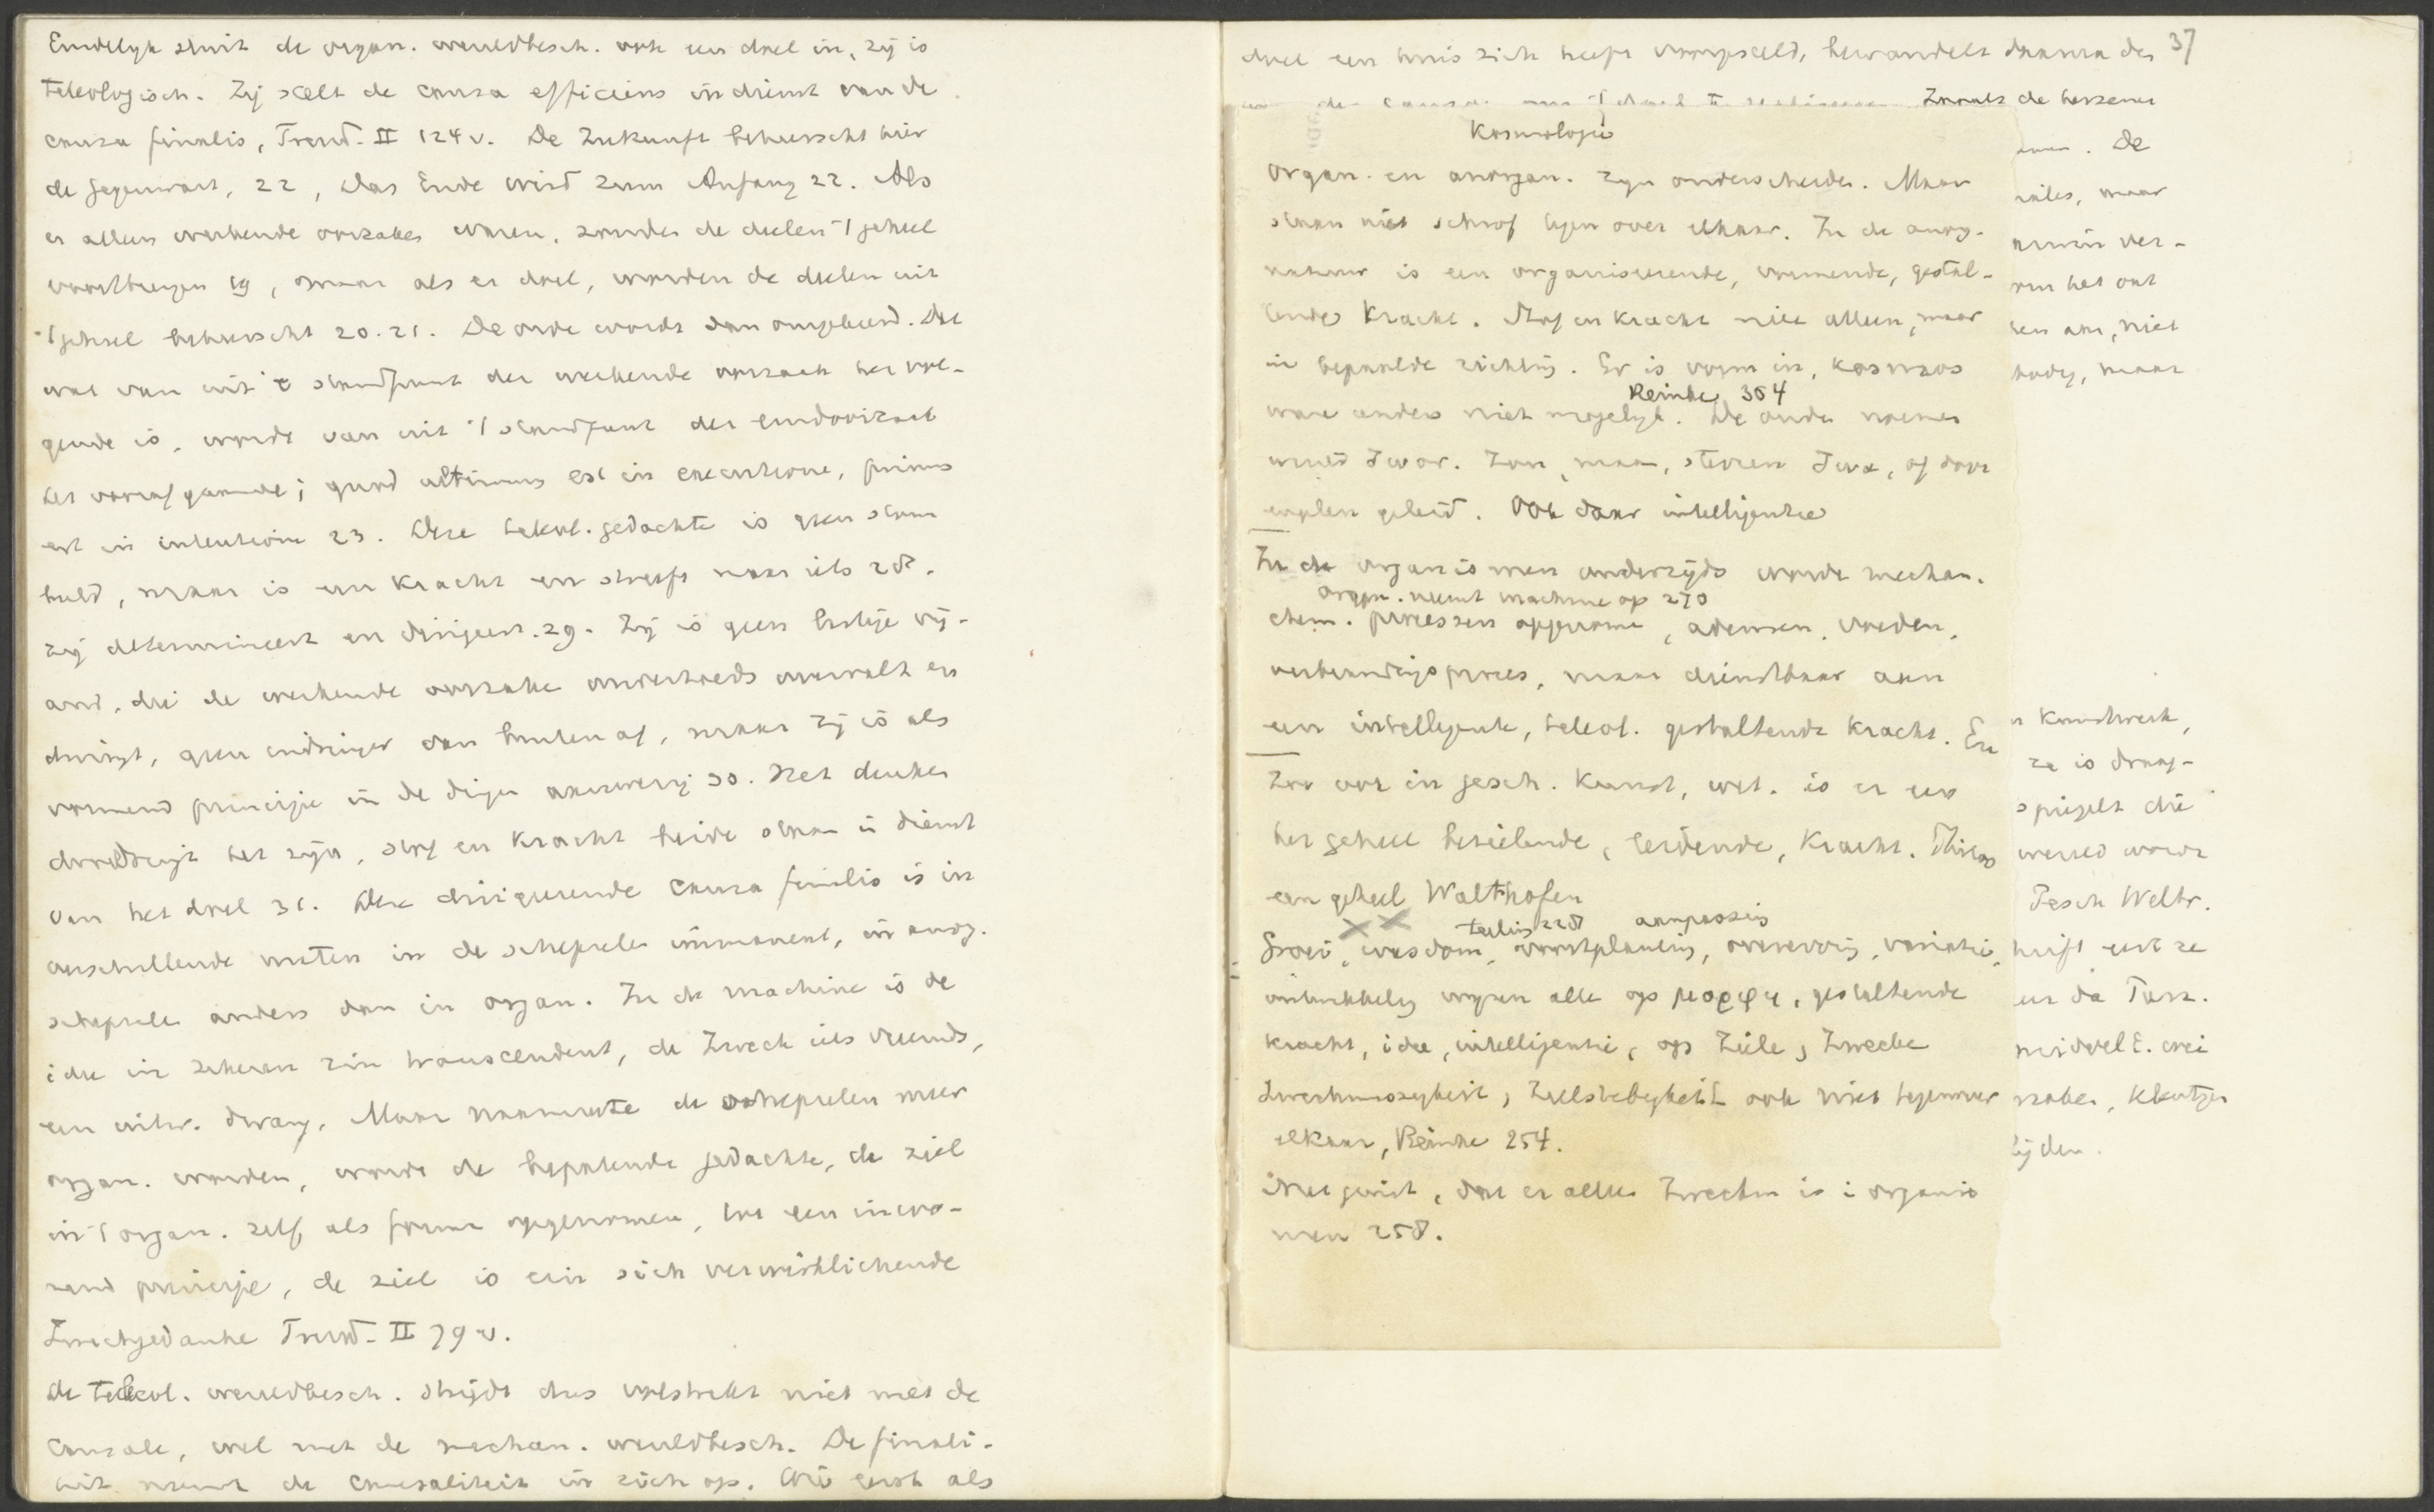 Eindelyk sluit de organ. wereldbesch. ook een doel in, zij is
teleologisch. Zij stelt de causa efficiens in dienst van de
causa finalis, Trend. II 124 v. De Zukunft beheerscht hier
de Gegenwart, 22, das Ende wird zum Anfang 22. Als
er alleen werkende oorzaken waren, zouden de deelen 't geheel
voortbrengen 19, maar als er doel, worden de deelen uit
't geheel beheerscht 20. 21. De orde wordt dan omgekeerd. Dat
wat van uit 't standpunt der werkende oorzaak het vol-
gende is, wordt van uit 't standpunt der eindoorzaak
het voorafgaande; quod ultimum est in executione, primum
est in intentione 23. Deze teleol. gedachte is geen stom
beeld, maar is een kracht en streeft naar iets 28.
zij determineert en dirigeert. 29. Zij is geen bestije vij-
and, die de werkende oorzake overvalt en
dwingt, geen indringer van buiten af, maar zij is als
vormend principe in de dingen aanwezig 30. Het denken
doordringt het zijn, stof en kracht beide staan in dienst
van het doel 31. Deze dirigeerende causa finalis is in
verschillende maten in de schepselen immanent, in anorg.
schepselen anders dan in organ. In de machine is de
idee in zekeren zin transcendent, de Zweck iets vreemds,
een uitw. dwang. Maar naarmate de schepselen meer
organ. worden, wordt de bepalende gedachte, de ziel
in 't organ. zelf als forma opgenomen, tot een inwo-
nend principe, de ziel is ein sich verwirklichende
Zweckgedanke Trend. II 79 v.
de teleol. wereldbesch. strijdt dus volstrekt niet met de
causale, wel met de mechan. wereldbesch. De finali-
teit neemt de causaliteit in zich op. Wie eerst als
37
doel een huis zich heeft voorgesteld, bewandelt daarna den
Zooals de hersenen
Kosmologie
organ. en anorgan. zyn onderscheiden. Maar
staan niet schrof tegen over elkaar. In de anorg.
natuur is een organiseerende, vormende, gestal-
tende kracht. Stof en kracht niet alleen, maar
in bepaalde richting. Er is vorm in, kosmos
Reinke 354
ware anders niet mogelyk. De ouden noemen
wereld ζωον. Zon, maan, sterren ζωα, of door
engelen geleid. Ook daar intelligentie
In de organismen anderzijds worden mechan.
organ. neemt machine op 270
chem. processen opgenomen, ademen, voeden,
verbrandingsproces, maar dienstbaar aan
een intelligente, teleol. gestaltende kracht. En
zoo ook in gesch. kunst, wet. is er een
het geheel bezielende, leidende, kracht. Thomas
een geheel Walthofen
teeling 228 aanpassing
Groei, wasdom, voortplanting, overerving, variatie,
ontwikkeling wyzen alle op μορφη, gestaltende
kracht, idee, intelligentie, op Ziele, Zwecke
Zweckmaszigkeit, Zielstrebigkeit ook niet tegenover
elkaar, Reinke 254.
Niet gezegd, dat er alleen Zwecken is i organis
men 258.
De
maar
ver-
het ont
aan, niet
maar
kunstwerk,
ze is draag-
spiegelt die
wereld wordt
Pesch Weltr.
lijden.